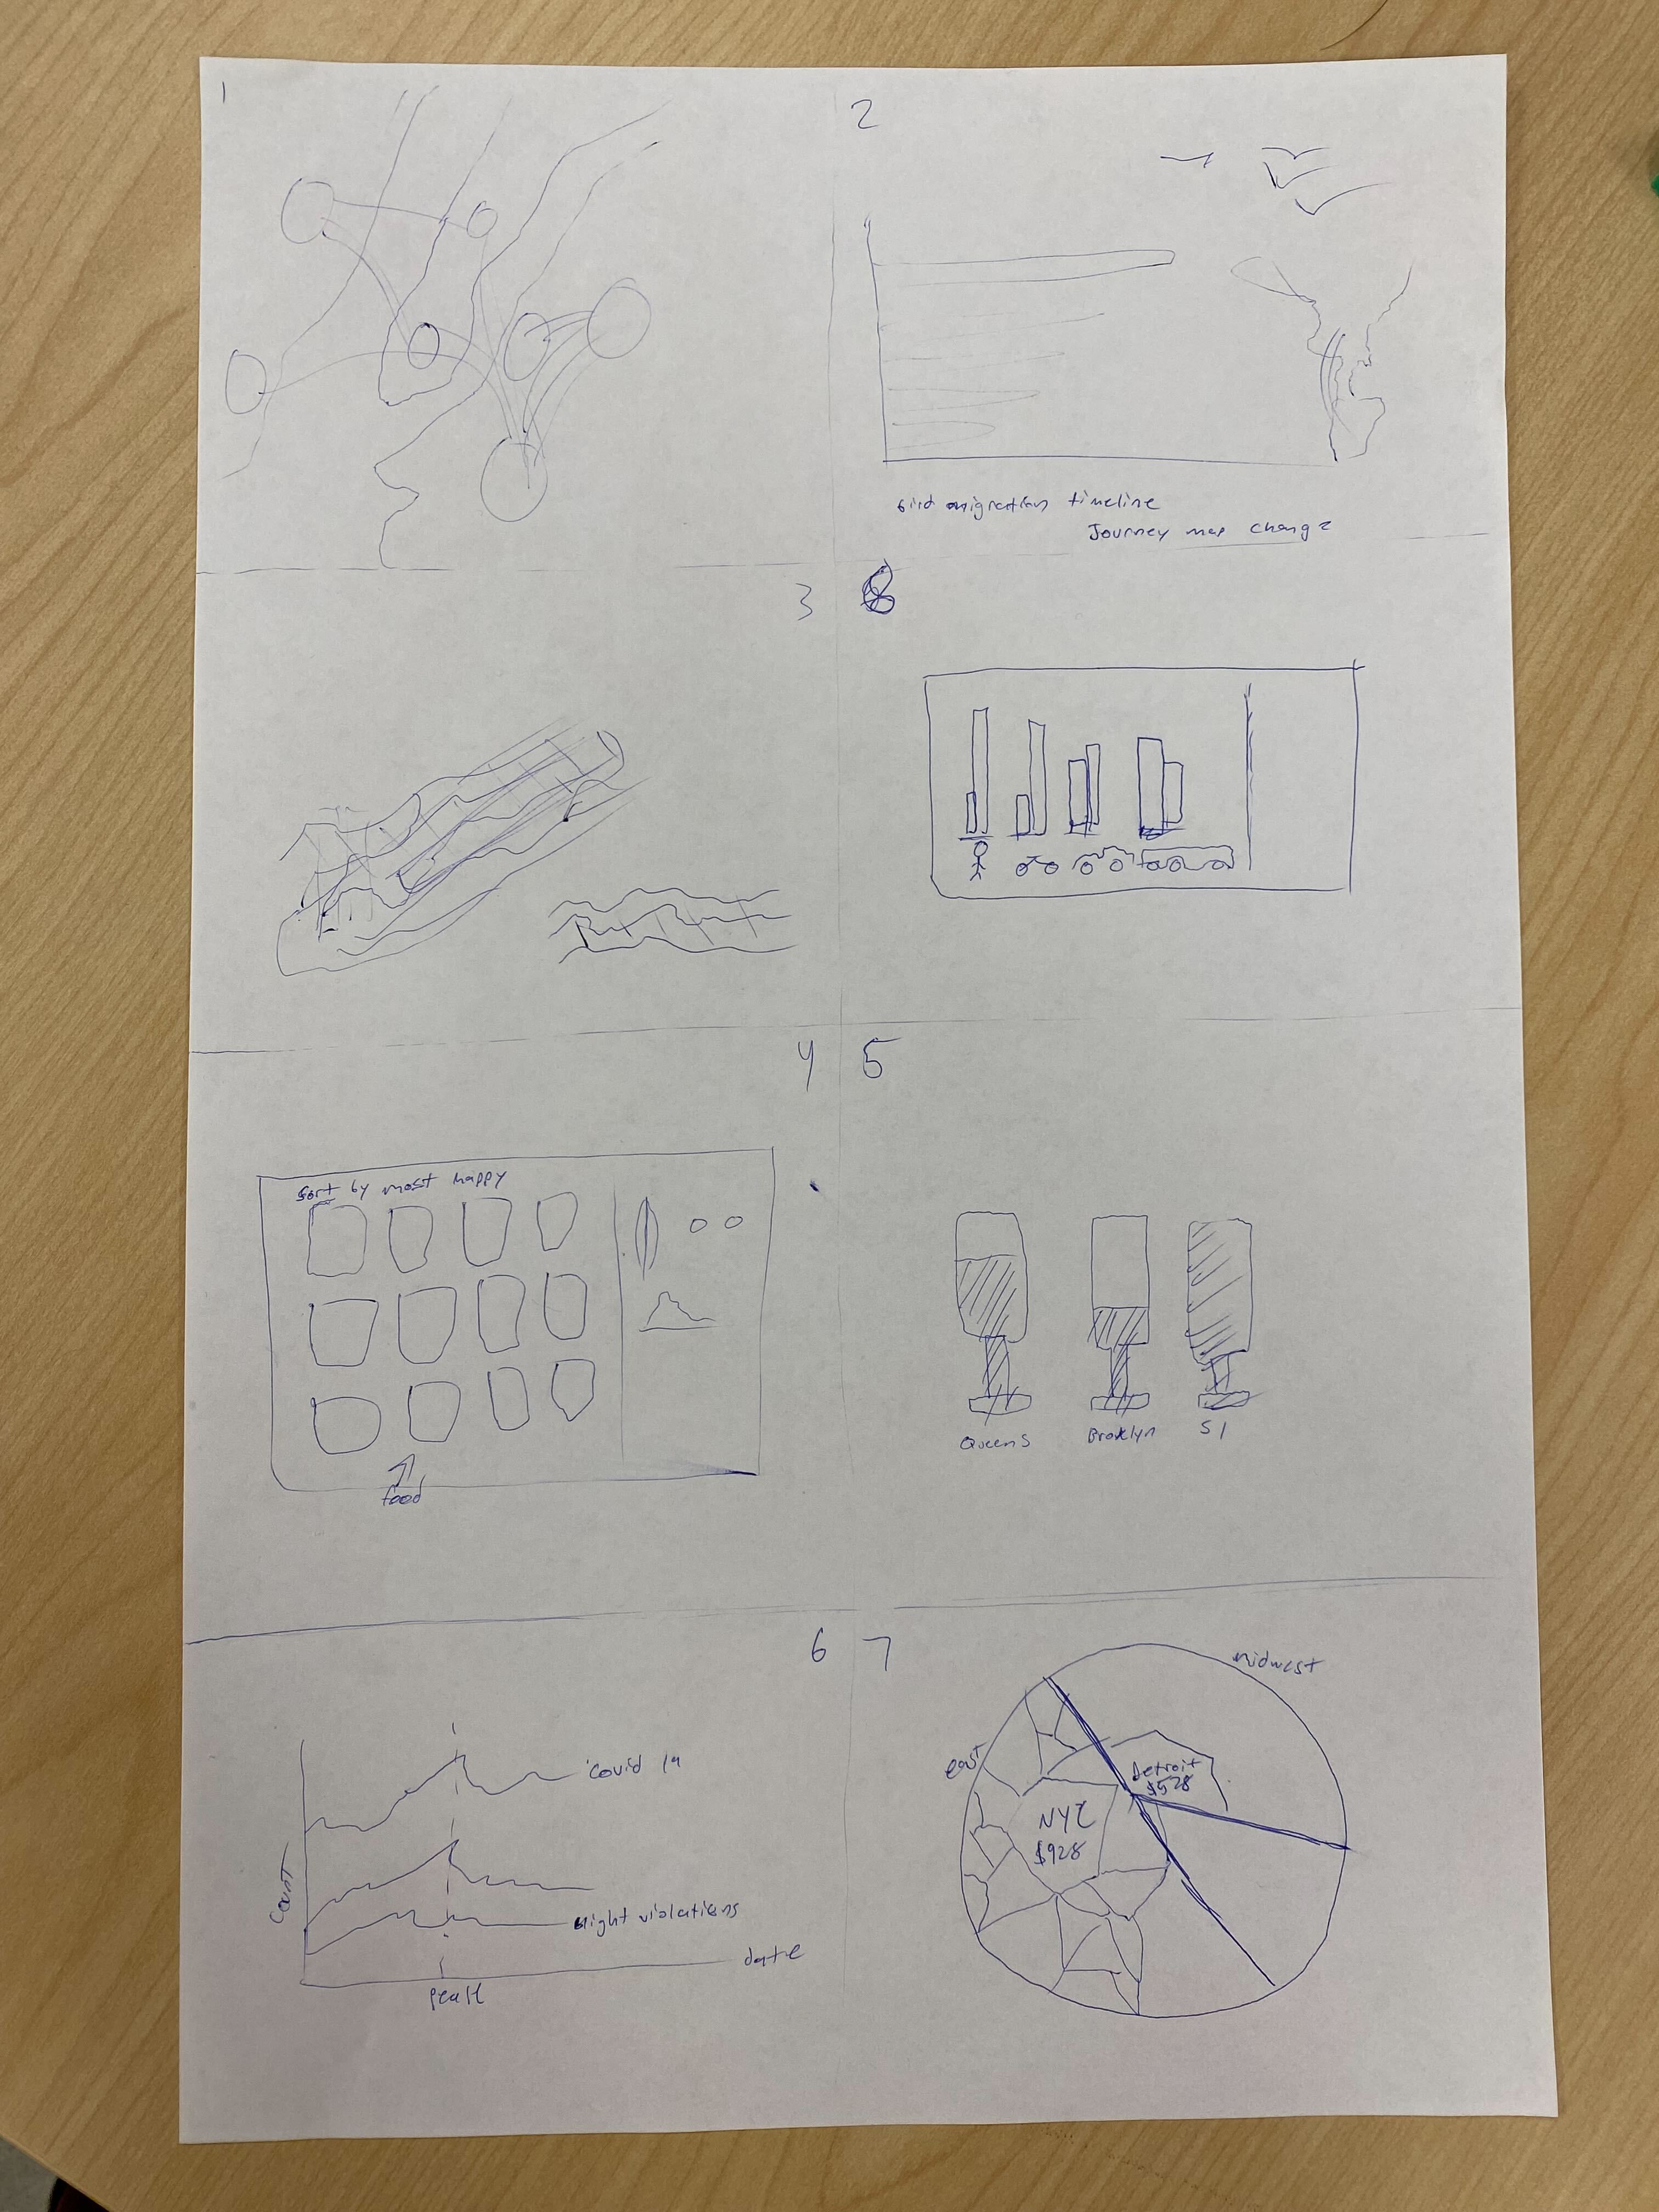 1
2
Bird migration timeline
Journey map change
3
8
4
Sort by most happy
food
5
Queens
Brooklyn
SI
6
Covid 19
Count
Night violations
date
peak
7
midwest
east
Detroit
$528
NYC
$928